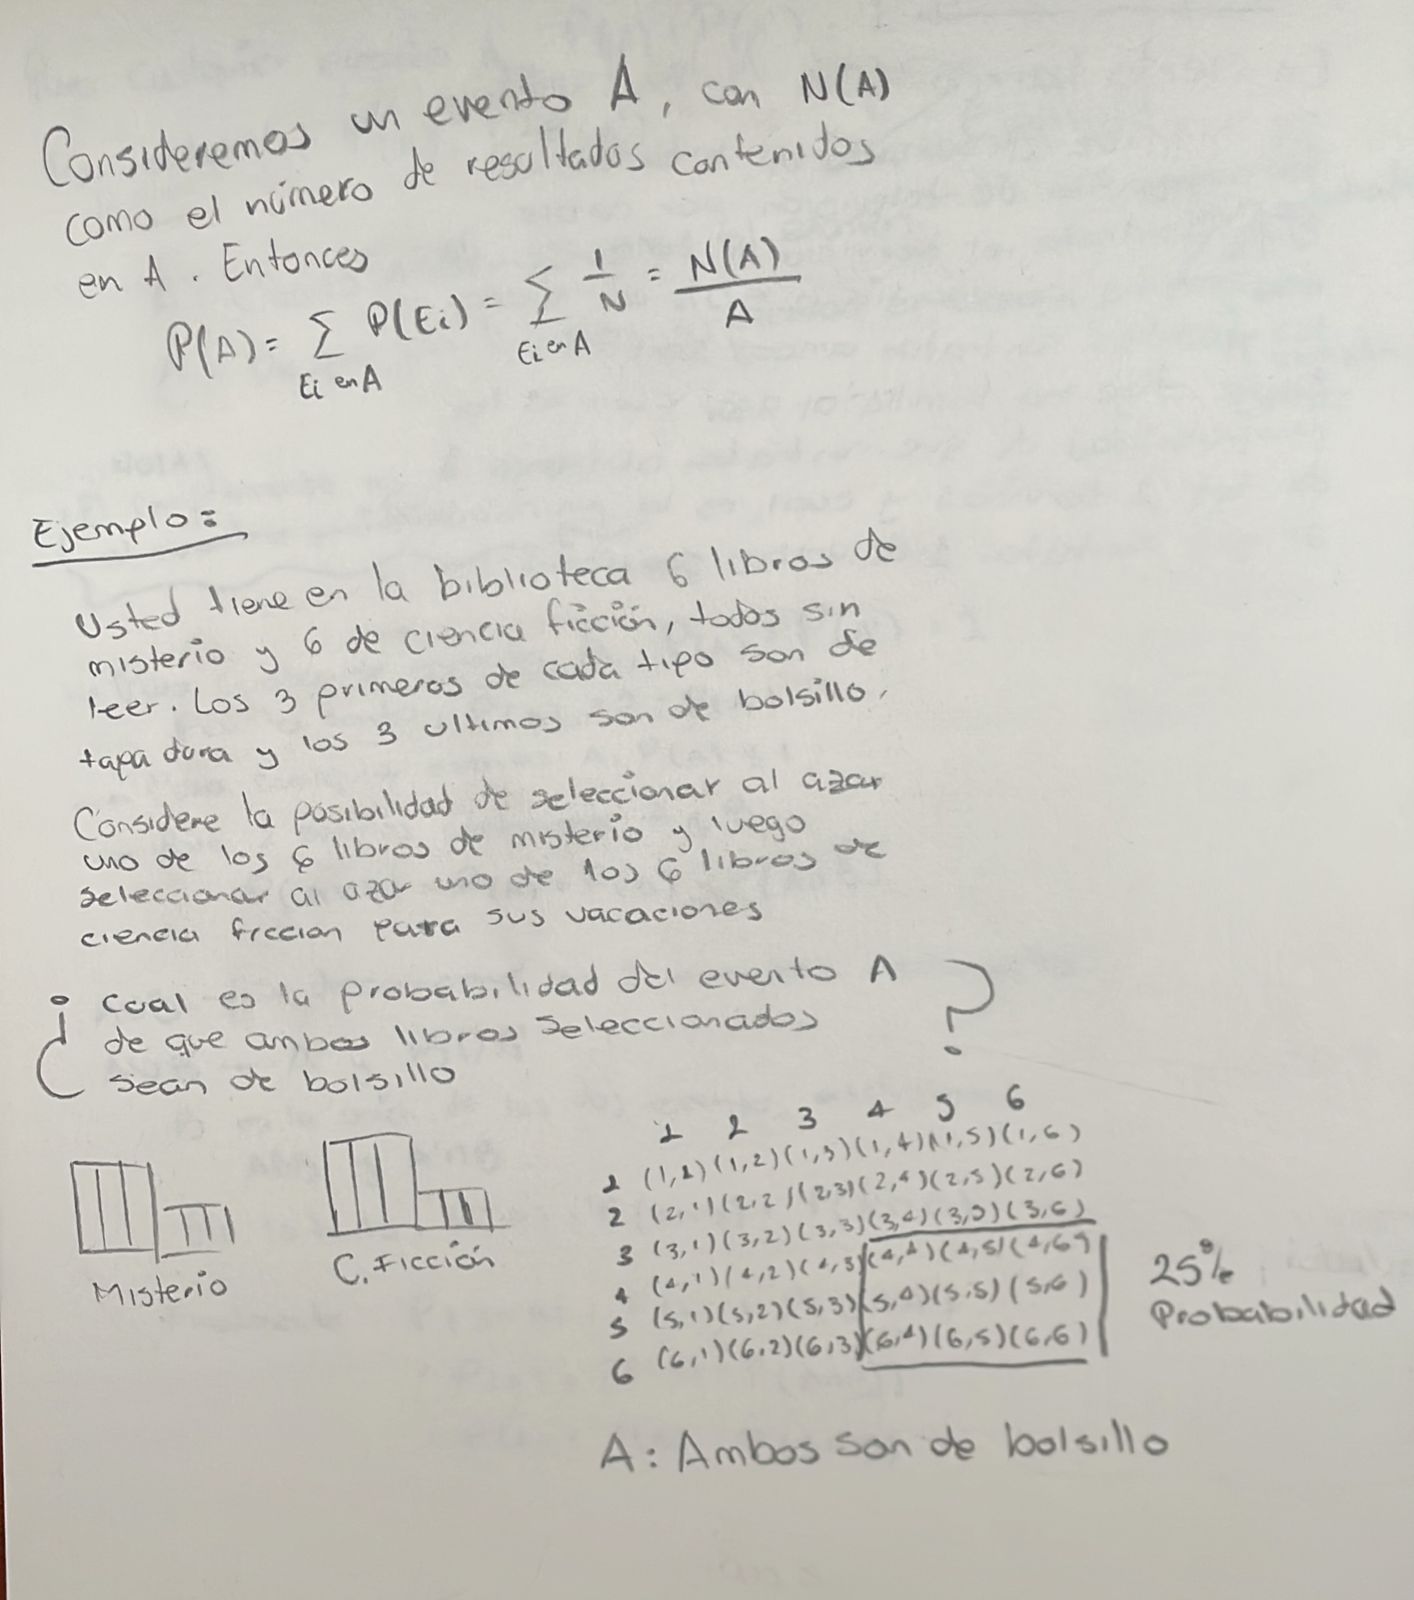 Consideremos un evento A, con N(A)
como el número de resultados contenidos
en A. Entonces
P(A) = Σ P(Ei) = Σ 1/N = N(A)/A
Ei en A Ei en A
Ejemplo:
Usted tiene en la biblioteca 6 libros de
misterio y 6 de ciencia ficción, todos sin
leer. Los 3 primeros de cada tipo son de
tapa dura y los 3 ultimos son de bolsillo.
Considere la posibilidad de seleccionar al azar
uno de los 6 libros de misterio y luego
seleccionar al azar uno de los 6 libros de
ciencia ficcion para sus vacaciones
¿ cual es la probabilidad del evento A ?
de que ambos libros seleccionados
sean de bolsillo
1 2 3 4 5 6
1 (1,1) (1,2) (1,3) (1,4) (1,5) (1,6)
2 (2,1) (2,2) (2,3) (2,4) (2,5) (2,6)
3 (3,1) (3,2) (3,3) (3,4) (3,5) (3,6)
4 (4,1) (4,2) (4,3) (4,4) (4,5) (4,6)
5 (5,1) (5,2) (5,3) (5,4) (5,5) (5,6)
6 (6,1) (6,2) (6,3) (6,4) (6,5) (6,6)
Misterio
C. Ficción
25%
Probabilidad
A: Ambos son de bolsillo